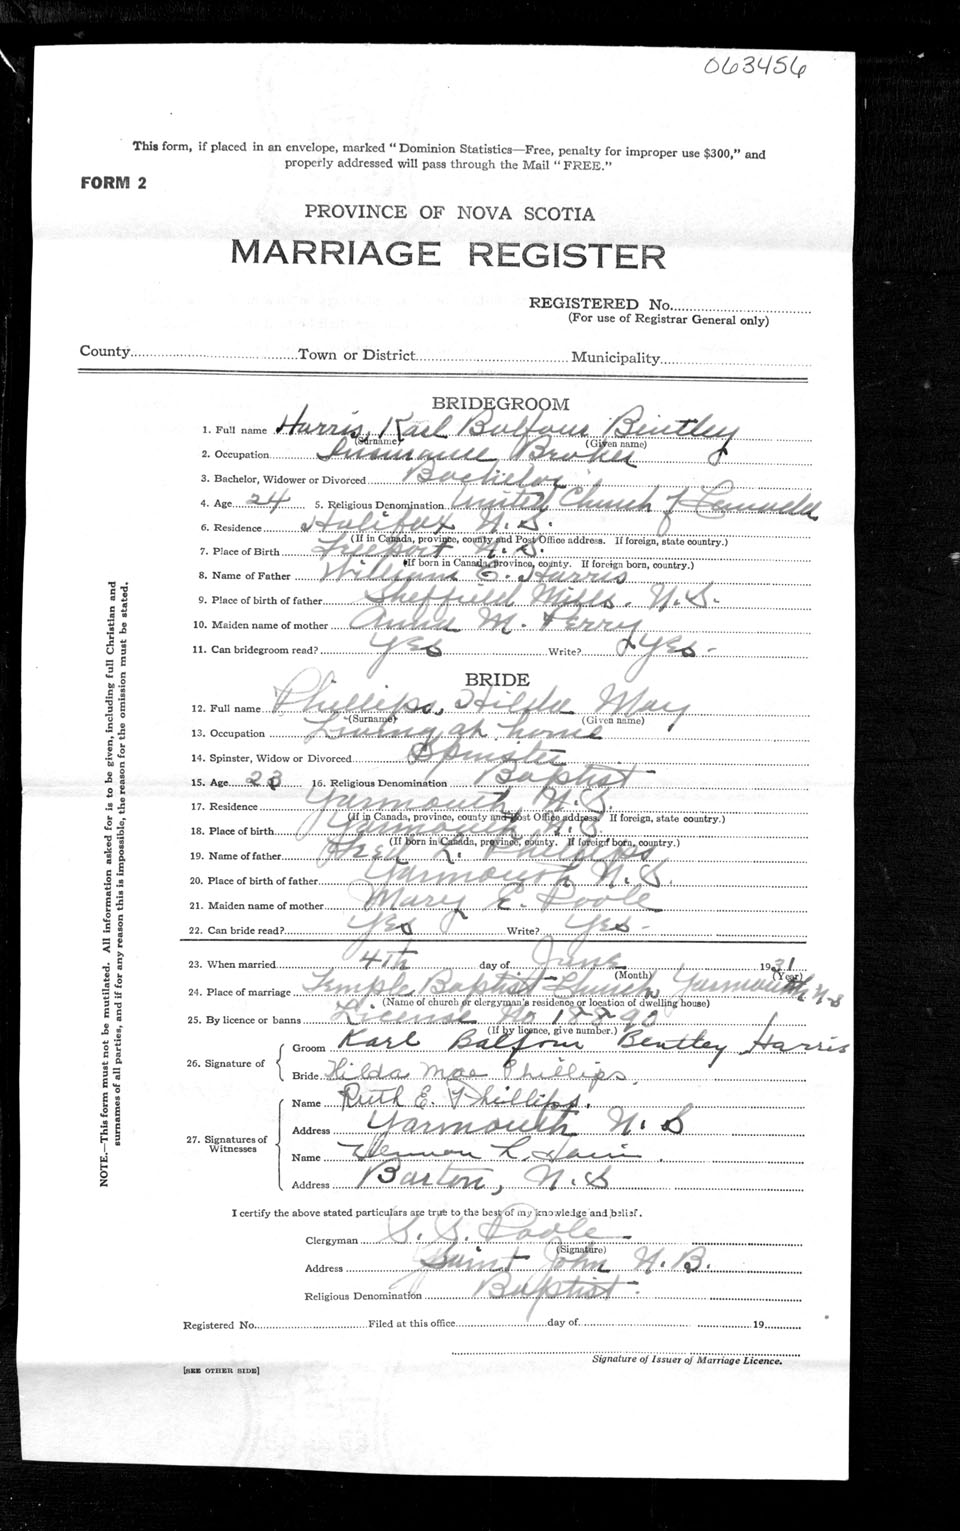 063456
This form, if placed in an envelope, marked "Dominion Statistics—Free, penalty for improper use $300," and
properly addressed will pass through the Mail "FREE."
FORM 2
PROVINCE OF NOVA SCOTIA
MARRIAGE REGISTER
REGISTERED No.
(For use of Registrar General only)
County Town or District Municipality
BRIDEGROOM
1. Full name Harris, Karl Balfour Bentley
(Surname) (Given name)
2. Occupation Insurance Broker
3. Bachelor, Widower or Divorced Bachelor
4. Age 24 5. Religious Denomination United Church of Canada
6. Residence Halifax N.S.
(If in Canada, province, county and Post Office address. If foreign, state country.)
7. Place of Birth Freeport N.S.
(If born in Canada, province, county. If foreign born, country.)
8. Name of Father William E. Harris
9. Place of birth of father Sheffield Mills. N.S.
10. Maiden name of mother Annie M. Perry
11. Can bridegroom read? Yes Write? Yes -
BRIDE
12. Full name Phillips, Hilda May
(Surname) (Given name)
13. Occupation Living at home
14. Spinster, Widow or Divorced Spinster
15. Age 23 16. Religious Denomination Baptist
17. Residence Yarmouth, N.S.
(If in Canada, province, county and Post Office address. If foreign, state country.)
18. Place of birth Yarmouth, N.S.
(If born in Canada, province, county. If foreign born, country.)
19. Name of father Fred L. Phillips
20. Place of birth of father Yarmouth N.S.
21. Maiden name of mother Mary E. Poole
22. Can bride read? Yes Write? Yes -
23. When married 4th day of June 1931
(Month) (Year)
24. Place of marriage Temple Baptist Church Yarmouth N.S
(Name of church or clergyman's residence or location of dwelling house)
25. By licence or banns License No
(If by licence, give number.)
26. Signature of Groom Karl Balfour Bentley Harris
Bride Hilda Mae Phillips.
27. Signatures of Witnesses Name Ruth E. Phillips.
Address Yarmouth N.S
Name L.
Address Barton, N.S
I certify the above stated particulars are true to the best of my knowledge and belief.
Clergyman S. S. Poole
(Signature)
Address Saint John N.B.
Religious Denomination Baptist.
Registered No. Filed at this office day of 19
Signature of Issuer of Marriage Licence.
[SEE OTHER SIDE]
NOTE.—This form must not be mutilated. All information asked for is to be given, including full Christian and
surnames of all parties, and if for any reason this is impossible, the reason for the omission must be stated.